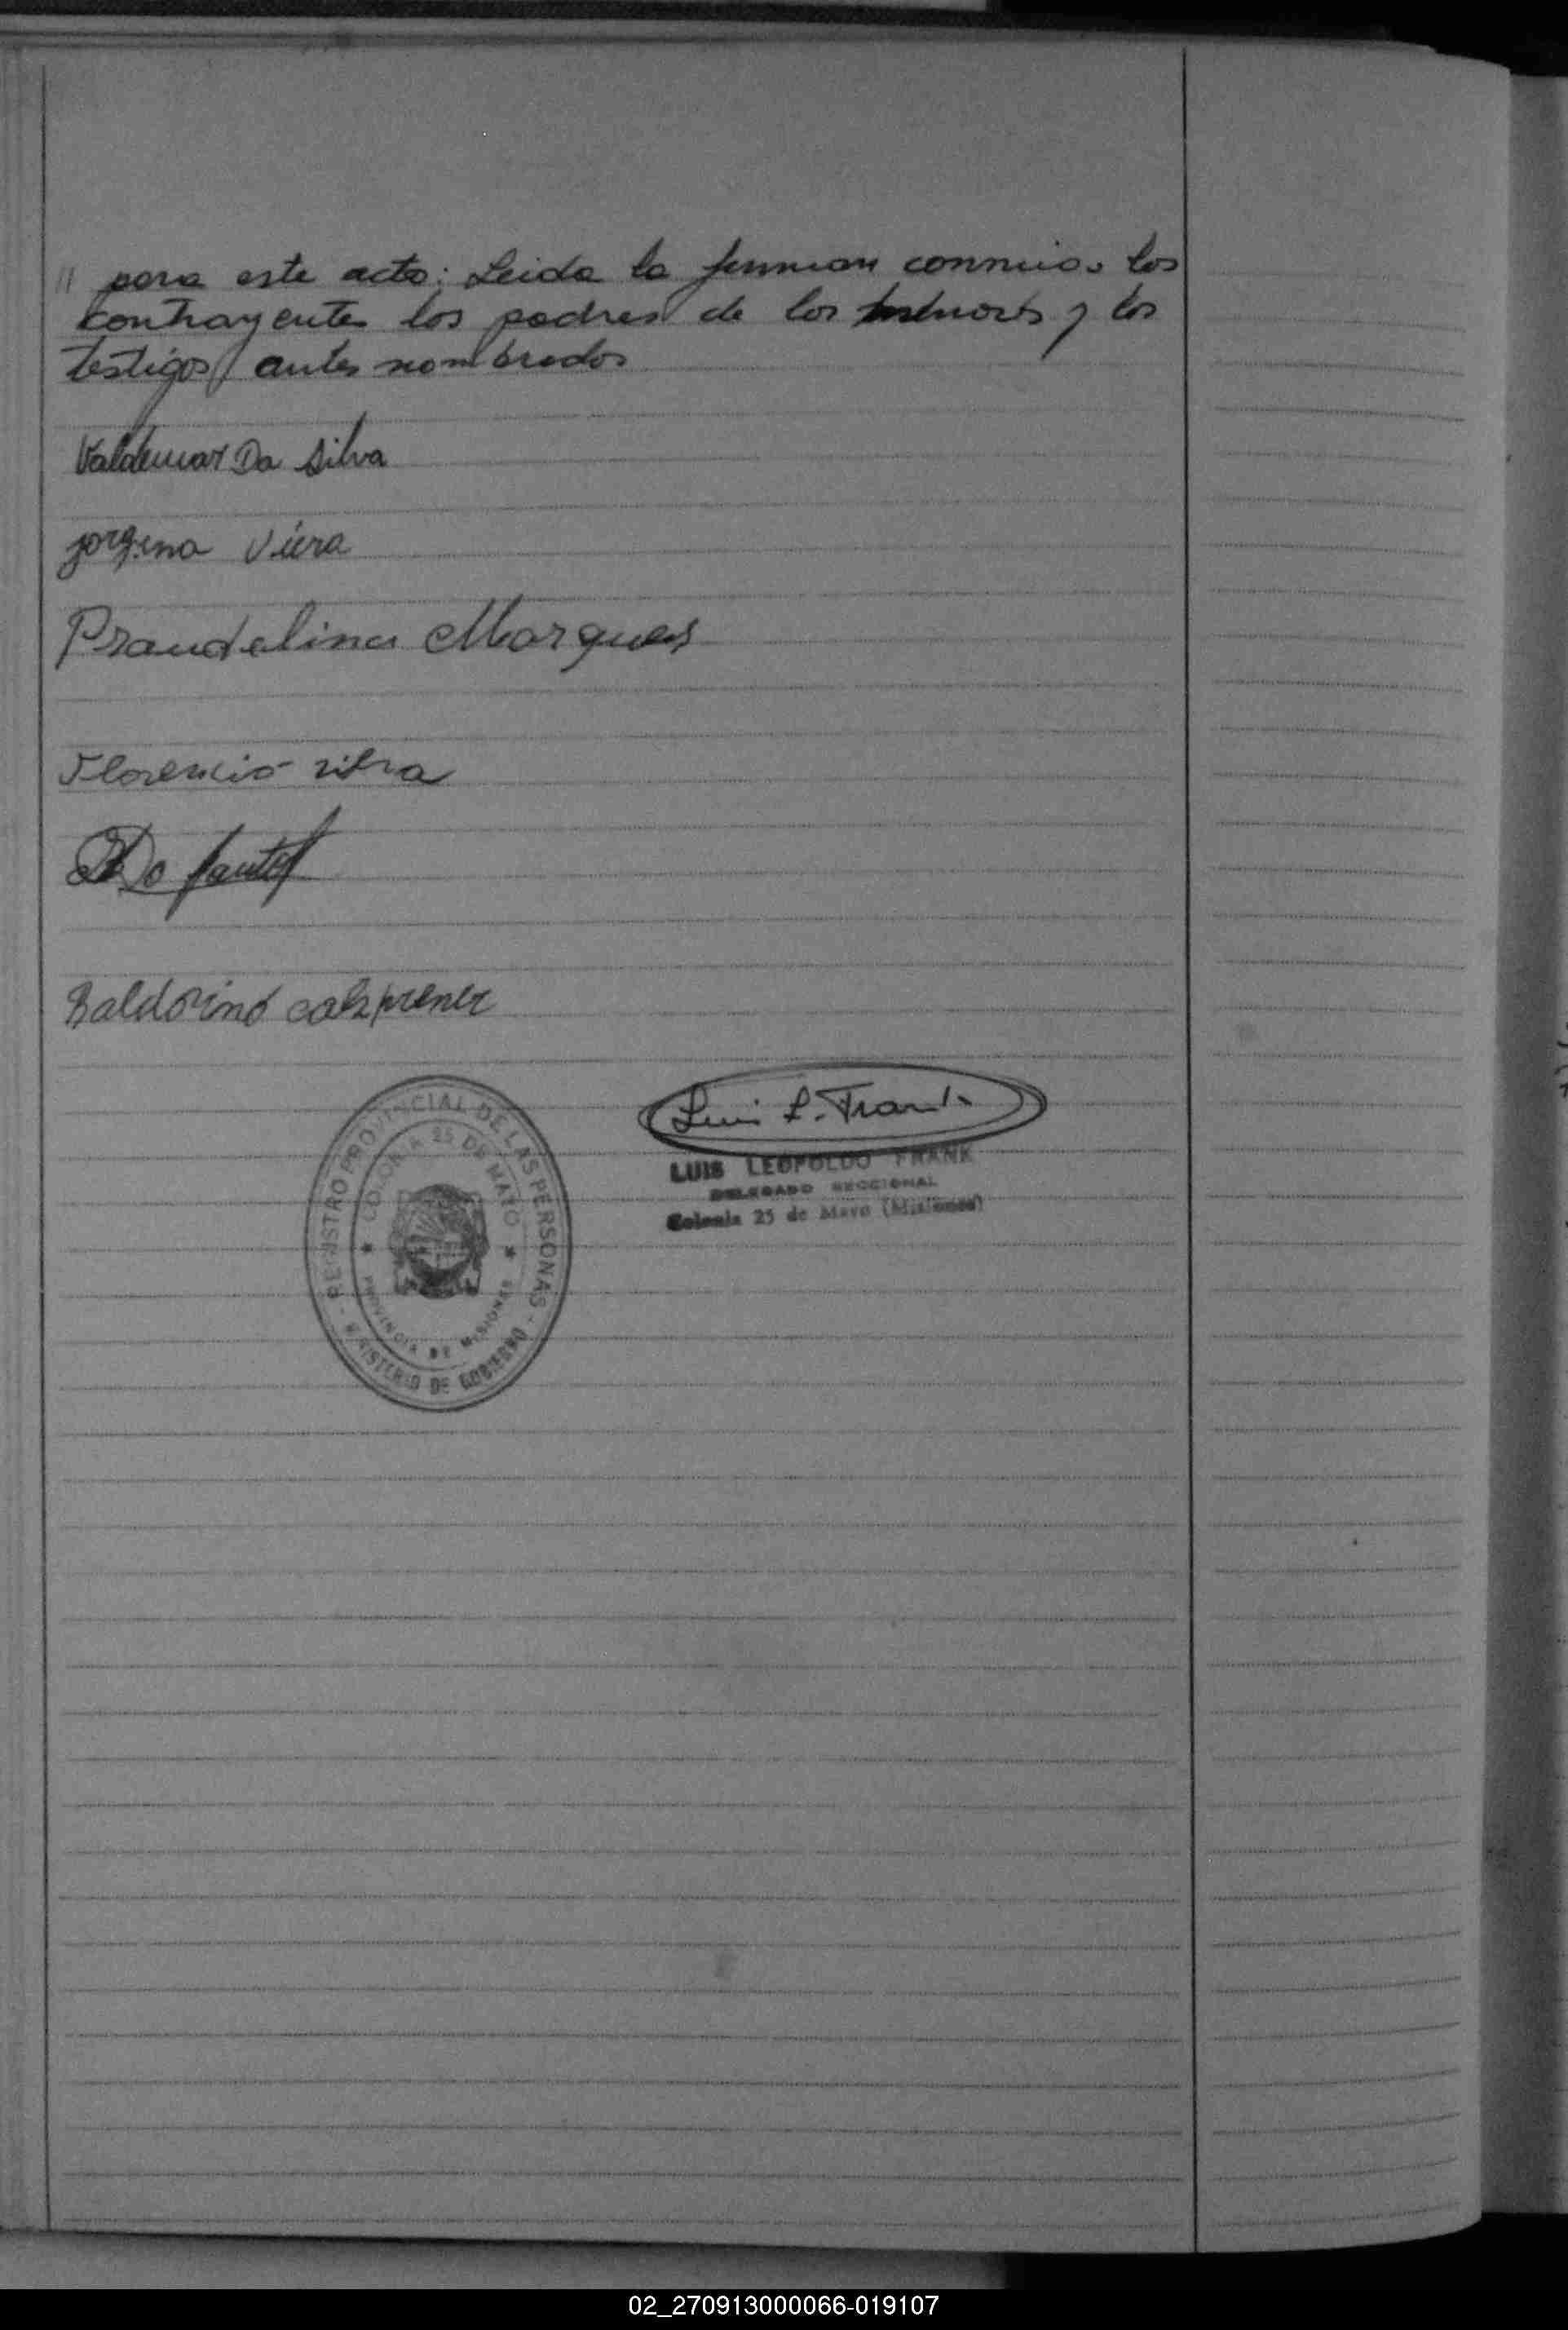 // para este acto: Leida la firman conmigo los
contrayentes los padres de los menores y los
testigos antes nombrados
Valdemar Da Silva
jorgina Viera
Praudelina Marques
Florencio silva
Do Santos
Baldorino
Luis L. Frank
LUIS LEOPOLDO FRANK
DELEGADO SECCIONAL
Colonia 25 de Mayo (Misiones)
REGISTRO PROVINCIAL DE LAS PERSONAS
MINISTERIO DE GOBIERNO
COLONIA 25 DE MAYO
PROVINCIA DE MISIONES
02_270913000066-019107